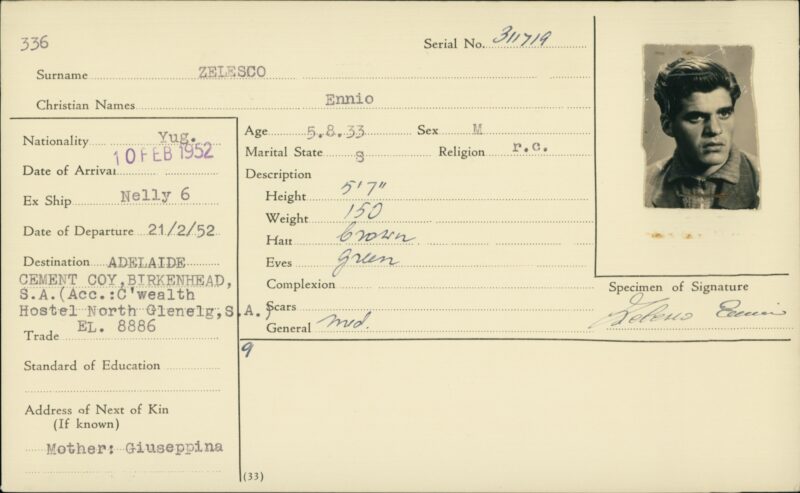 336
Serial No. 311719
Surname ZELESCO
Christian Names Ennio
Nationality Yug.
Date of Arrival 10 FEB 1952
Ex Ship Nelly 6
Date of Departure 21/2/52
Destination ADELAIDE
CEMENT COY,BIRKENHEAD,
S.A.(Acc.:C'wealth
Hostel North Glenelg,S.A.)
EL. 8886
Trade
Standard of Education
Address of Next of Kin
(If known)
Mother: Giuseppina
Age 5.8.33 Sex M
Marital State S Religion r.c.
Description
Height 5'7"
Weight 150
Hair brown
Eyes green
Complexion
Scars
General med.
9
(33)
Specimen of Signature
Ennio